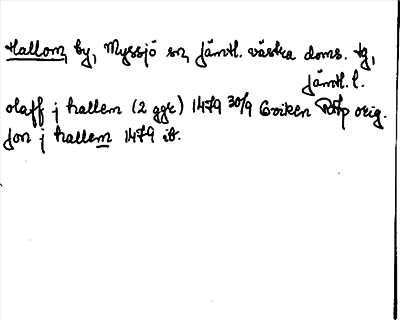 Hallom, by, Myssjö sn, Jämtl. västra doms. tg,
Jämtl. l.
olaff j hallem (2 ggr) 1479 30/9 Oviken RAp orig.
Jon j hallem 1479 ib.